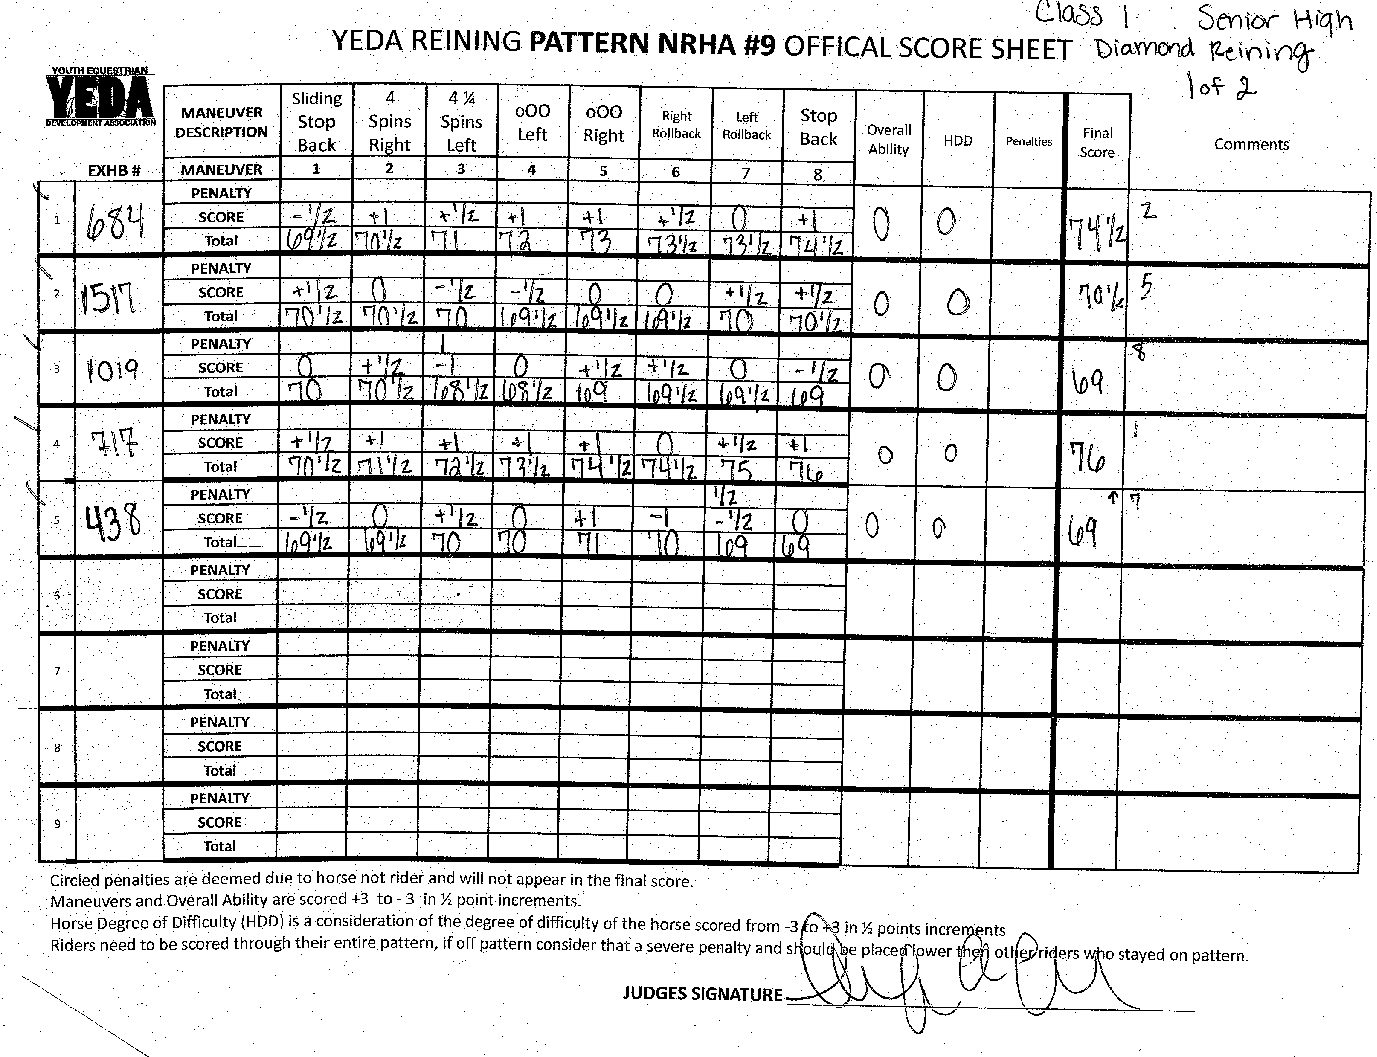 Class 1 Senior High
YEDA REINING PATTERN NRHA #9 OFFICAL SCORE SHEET Diamond Reining
1 of 2
YOUTH EQUESTRIAN
YEDA
DEVELOPMENT ASSOCIATION
EXHB # MANEUVER DESCRIPTION Sliding Stop Back 4 Spins Right 4 ¼ Spins Left oOO Left oOO Right Right Rollback Left Rollback Stop Back Overall Ability HDD Penalties Final Score Comments
MANEUVER 1 2 3 4 5 6 7 8
1 684 PENALTY
SCORE -1/2 +1 +1/2 +1 +1 +1/2 0 +1 0 0 74 1/2 2
Total 69 1/2 70 1/2 71 72 73 73 1/2 73 1/2 74 1/2
2 1517 PENALTY
SCORE +1/2 0 -1/2 -1/2 0 0 +1/2 +1/2 0 0 70 1/2 5
Total 70 1/2 70 1/2 70 69 1/2 69 1/2 69 1/2 70 70 1/2
3 1019 PENALTY 1
SCORE 0 +1/2 -1 0 +1/2 +1/2 0 -1/2 0 0 69 8
Total 70 70 1/2 68 1/2 68 1/2 69 69 1/2 69 1/2 69
4 717 PENALTY
SCORE +1/2 +1 +1 +1 +1 0 +1/2 +1 0 0 76 1
Total 70 1/2 71 1/2 72 1/2 73 1/2 74 1/2 74 1/2 75 76
5 438 PENALTY 1/2
SCORE -1/2 0 +1/2 0 +1 -1 -1/2 0 0 0 69 ↑ 7
Total 69 1/2 69 1/2 70 70 71 70 69 69
6 PENALTY
SCORE
Total
7 PENALTY
SCORE
Total
8 PENALTY
SCORE
Total
9 PENALTY
SCORE
Total
Circled penalties are deemed due to horse not rider and will not appear in the final score.
Maneuvers and Overall Ability are scored +3 to - 3 in ½ point increments.
Horse Degree of Difficulty (HDD) is a consideration of the degree of difficulty of the horse scored from -3 to +3 in ½ points increments
Riders need to be scored through their entire pattern, if off pattern consider that a severe penalty and should be placed lower then other riders who stayed on pattern.
JUDGES SIGNATURE